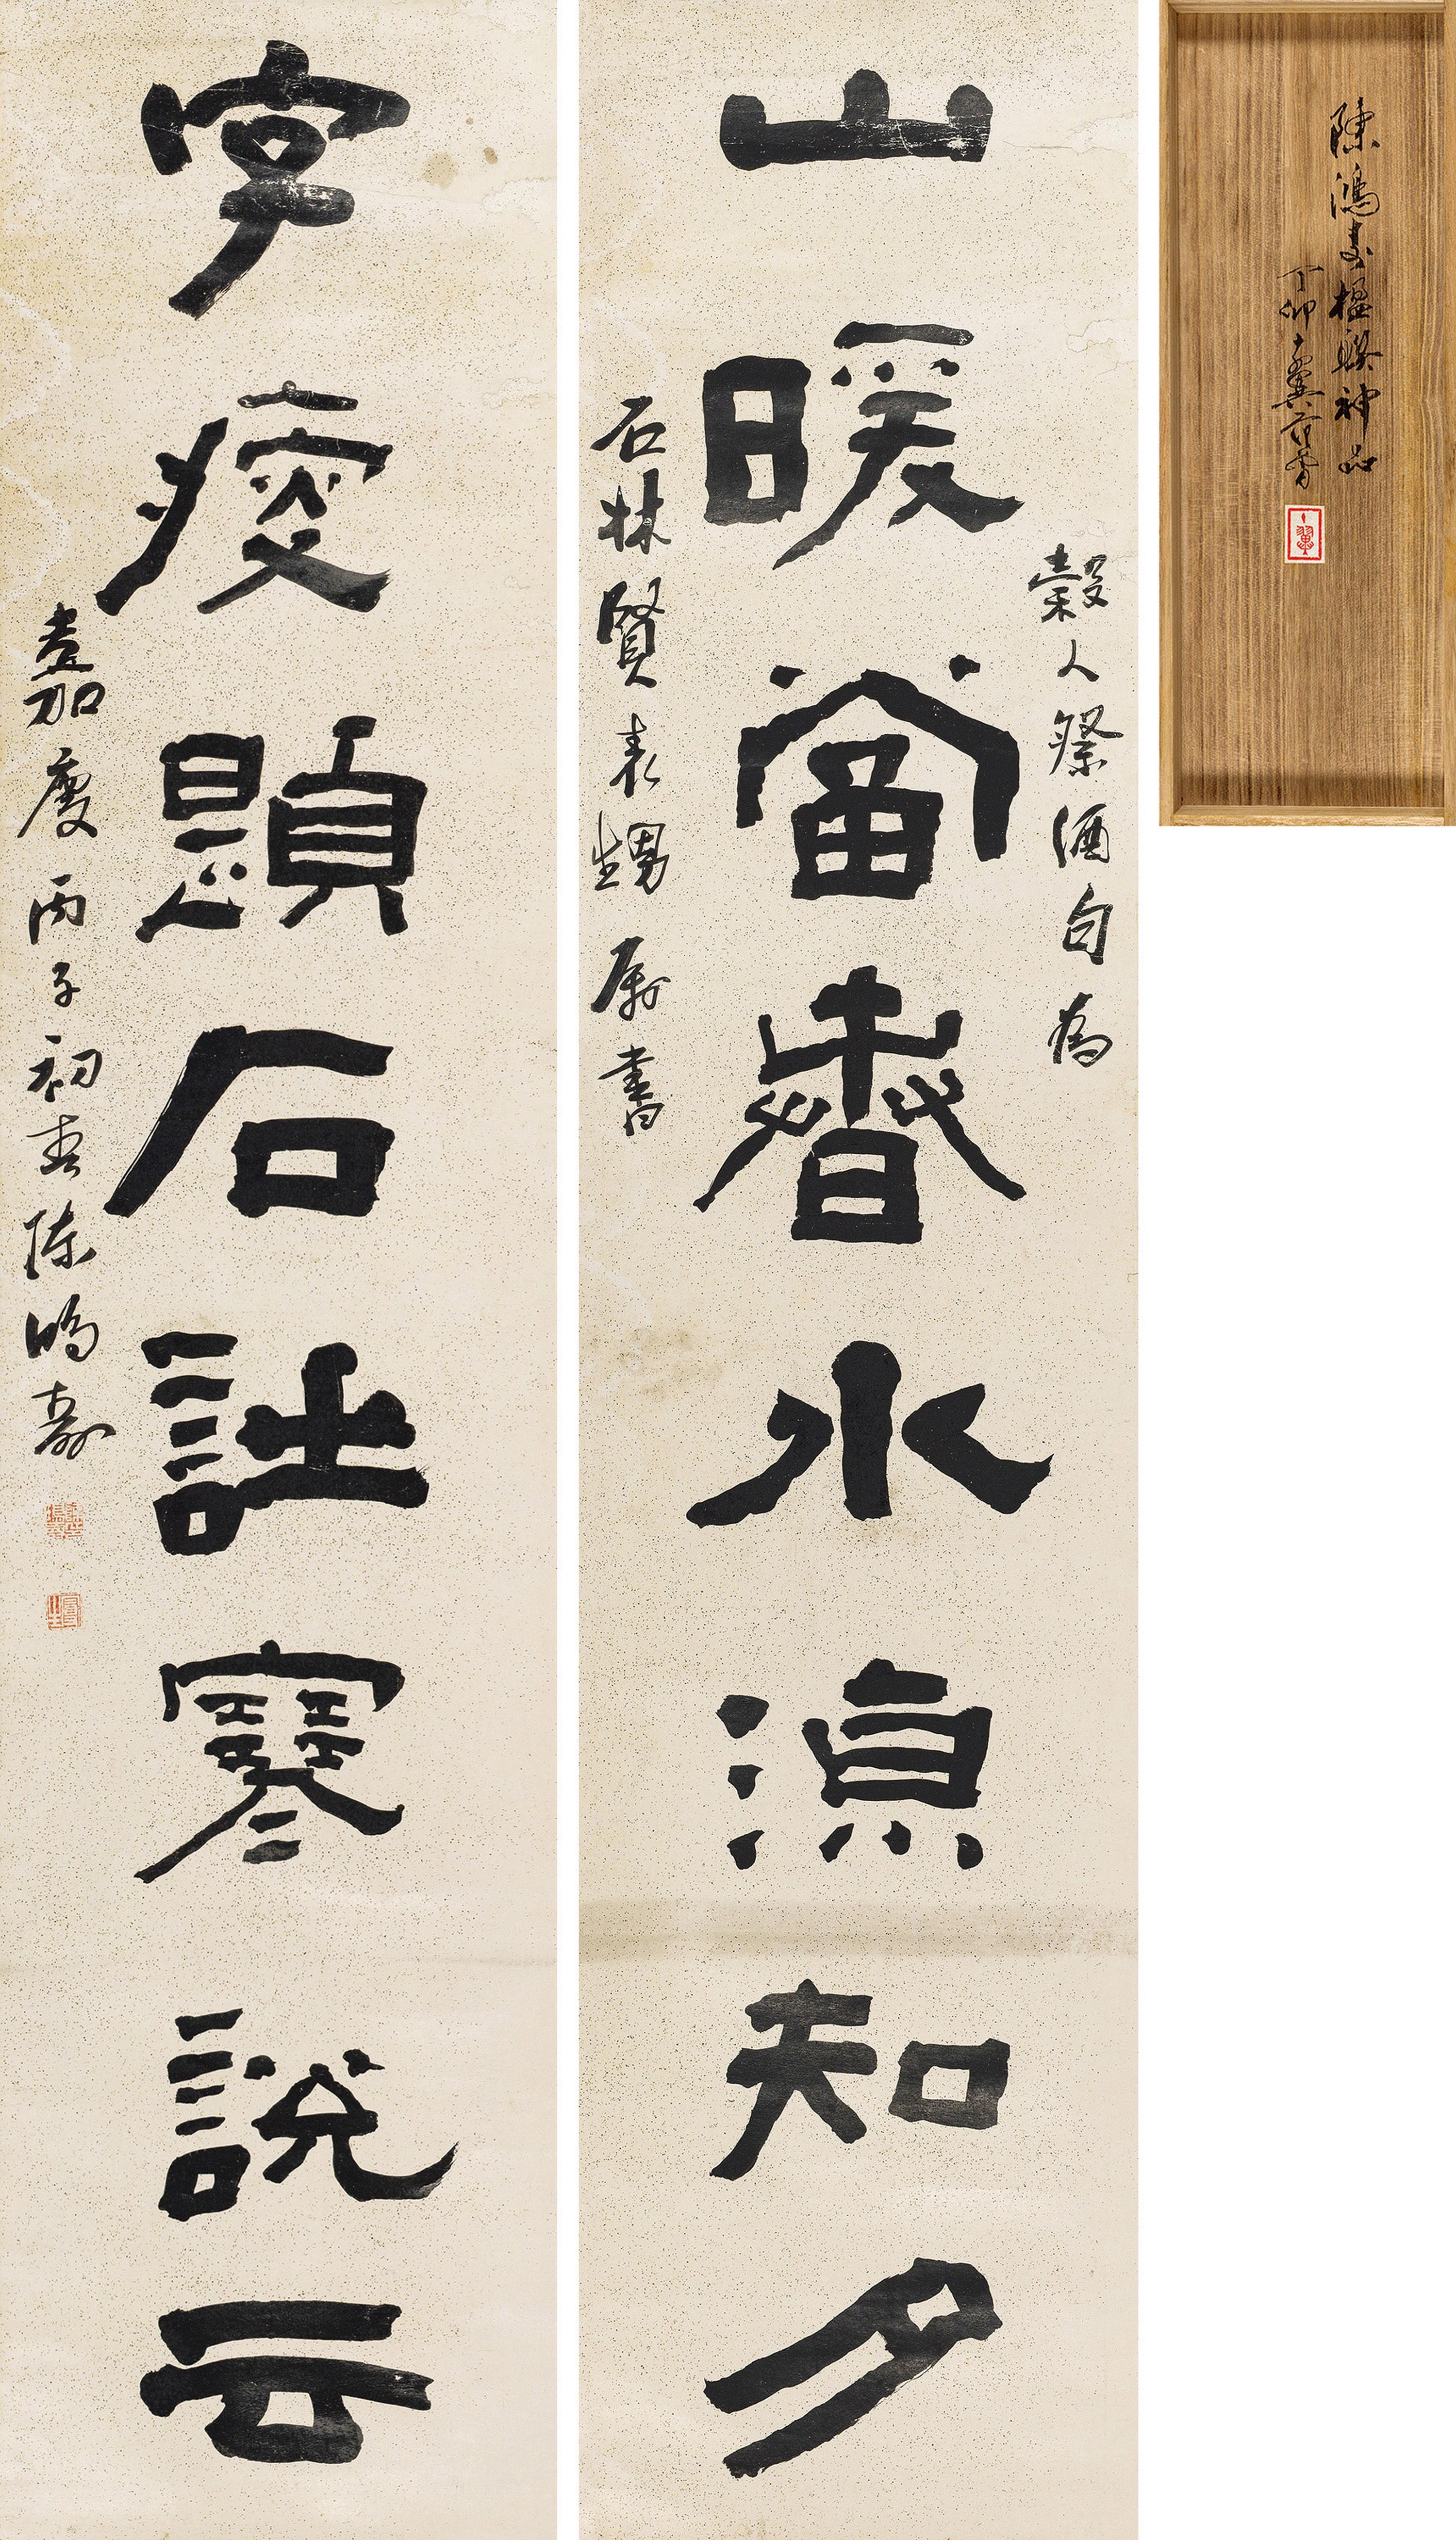 陳鴻壽楹聯神品
丁卯十翼范曾
穀人祭酒句為
山暖春水涼知夕
石林賢表甥屬書
字瘦題石註寒說云
嘉慶丙子初春陳鴻壽